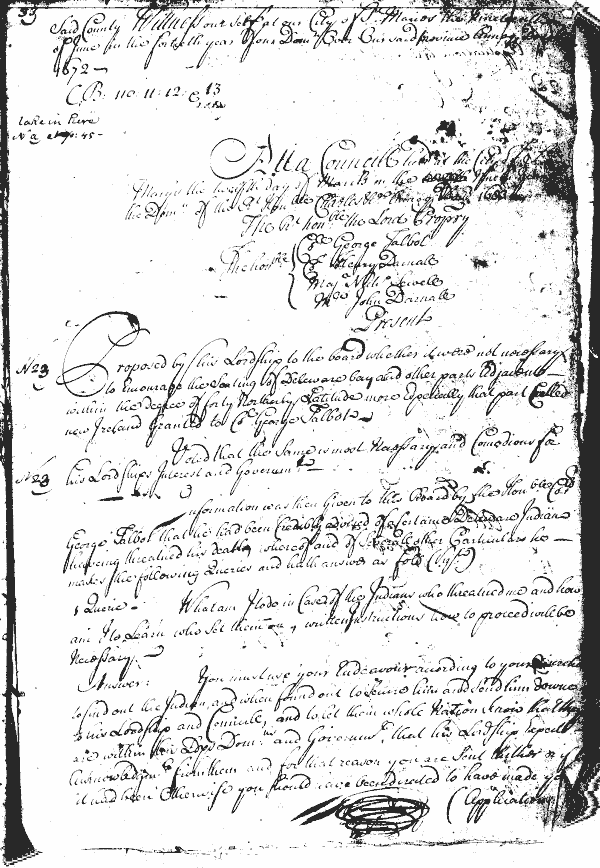 53
Said County Witness our self at our City of St. Maries the
of June in the fortieth year of our Domn. Over Our said province
1672
C.B: 110. 11: 12: & 13
take in here
N a at fo: 45-
At a Councill held at the City of St
Maryes the twelfth day of March in the
the Domn. of the Rt. Honble Charles &c
The Rt. honble the Lord Propry
The honble
Col. George Talbot
Col. Henry Darnale
Majr. Nich. Sewele
Mr. John Darnale
Present
N 23
Proposed by his Lordship to the board whether it were not necessary
to Encourage the Seating of Delaware bay and other parts Adjacent
within the degree of forty Northerly Latitude more Especially that part Called
new Ireland granted to Col. George Talbot
N 23
Voted that the same is most Necessary and Comodious for
his Lordships Interest and Governmt.
Information was then Given to this Board by the Honble Col
George Talbot that he had been Credibly advised of a certaine Indian
having threatned his death, whereof and of Severale other Particulars he
makes the following Queries and hath answer as follo (Vizt.)
1 Querie - What am I to do in Case of the Indians who threatned me and how
am I to Learn who set them on, written Instructions how to proceed will be
Necessary.
Answer: You must use your Endeavour according to your
to find out the Indian, and when found out to Secure him and send him downe
to his Lordship and Councile, and to let them whole Nation know that they
are within his Ldps Domns. and Governmt, that his Lordship Expects
Acknowledgmt. from them and for that reason you are Sent thither & if
it had been Otherwise you should have been directed to have made yor
(Application